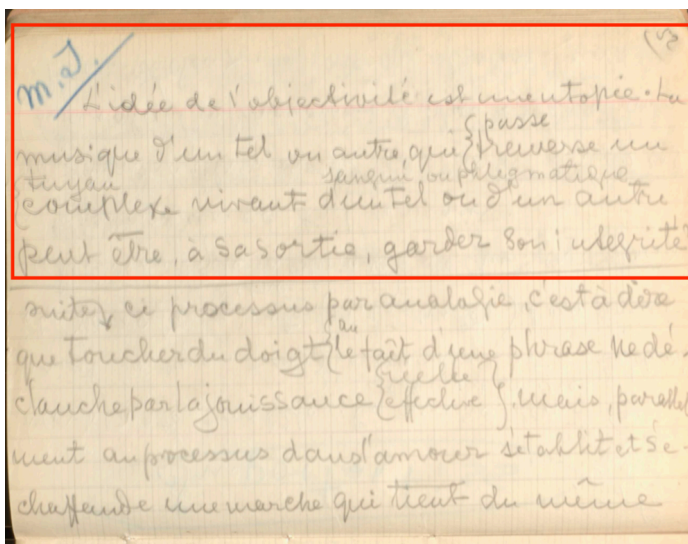 M.I.
L'idée de l'objectivité est une utopie. La
{passe
musique d'un tel ou autre, qui {traverse un
tuyau sanguin ou phlegmatique
{complexe vivant d'un tel ou d'un autre
peut être, à sa sortie, garder son intégrité
suite ci processus par analogie, c'est à dire
au
que toucher du doigt {le fait d'une phrase ne dé-
réelle }
clanche par la jouissance {effective }. Mais, parallèl
ment au processus dans l'amour s'établit et s'é-
chaffaude une marche qui tient du même